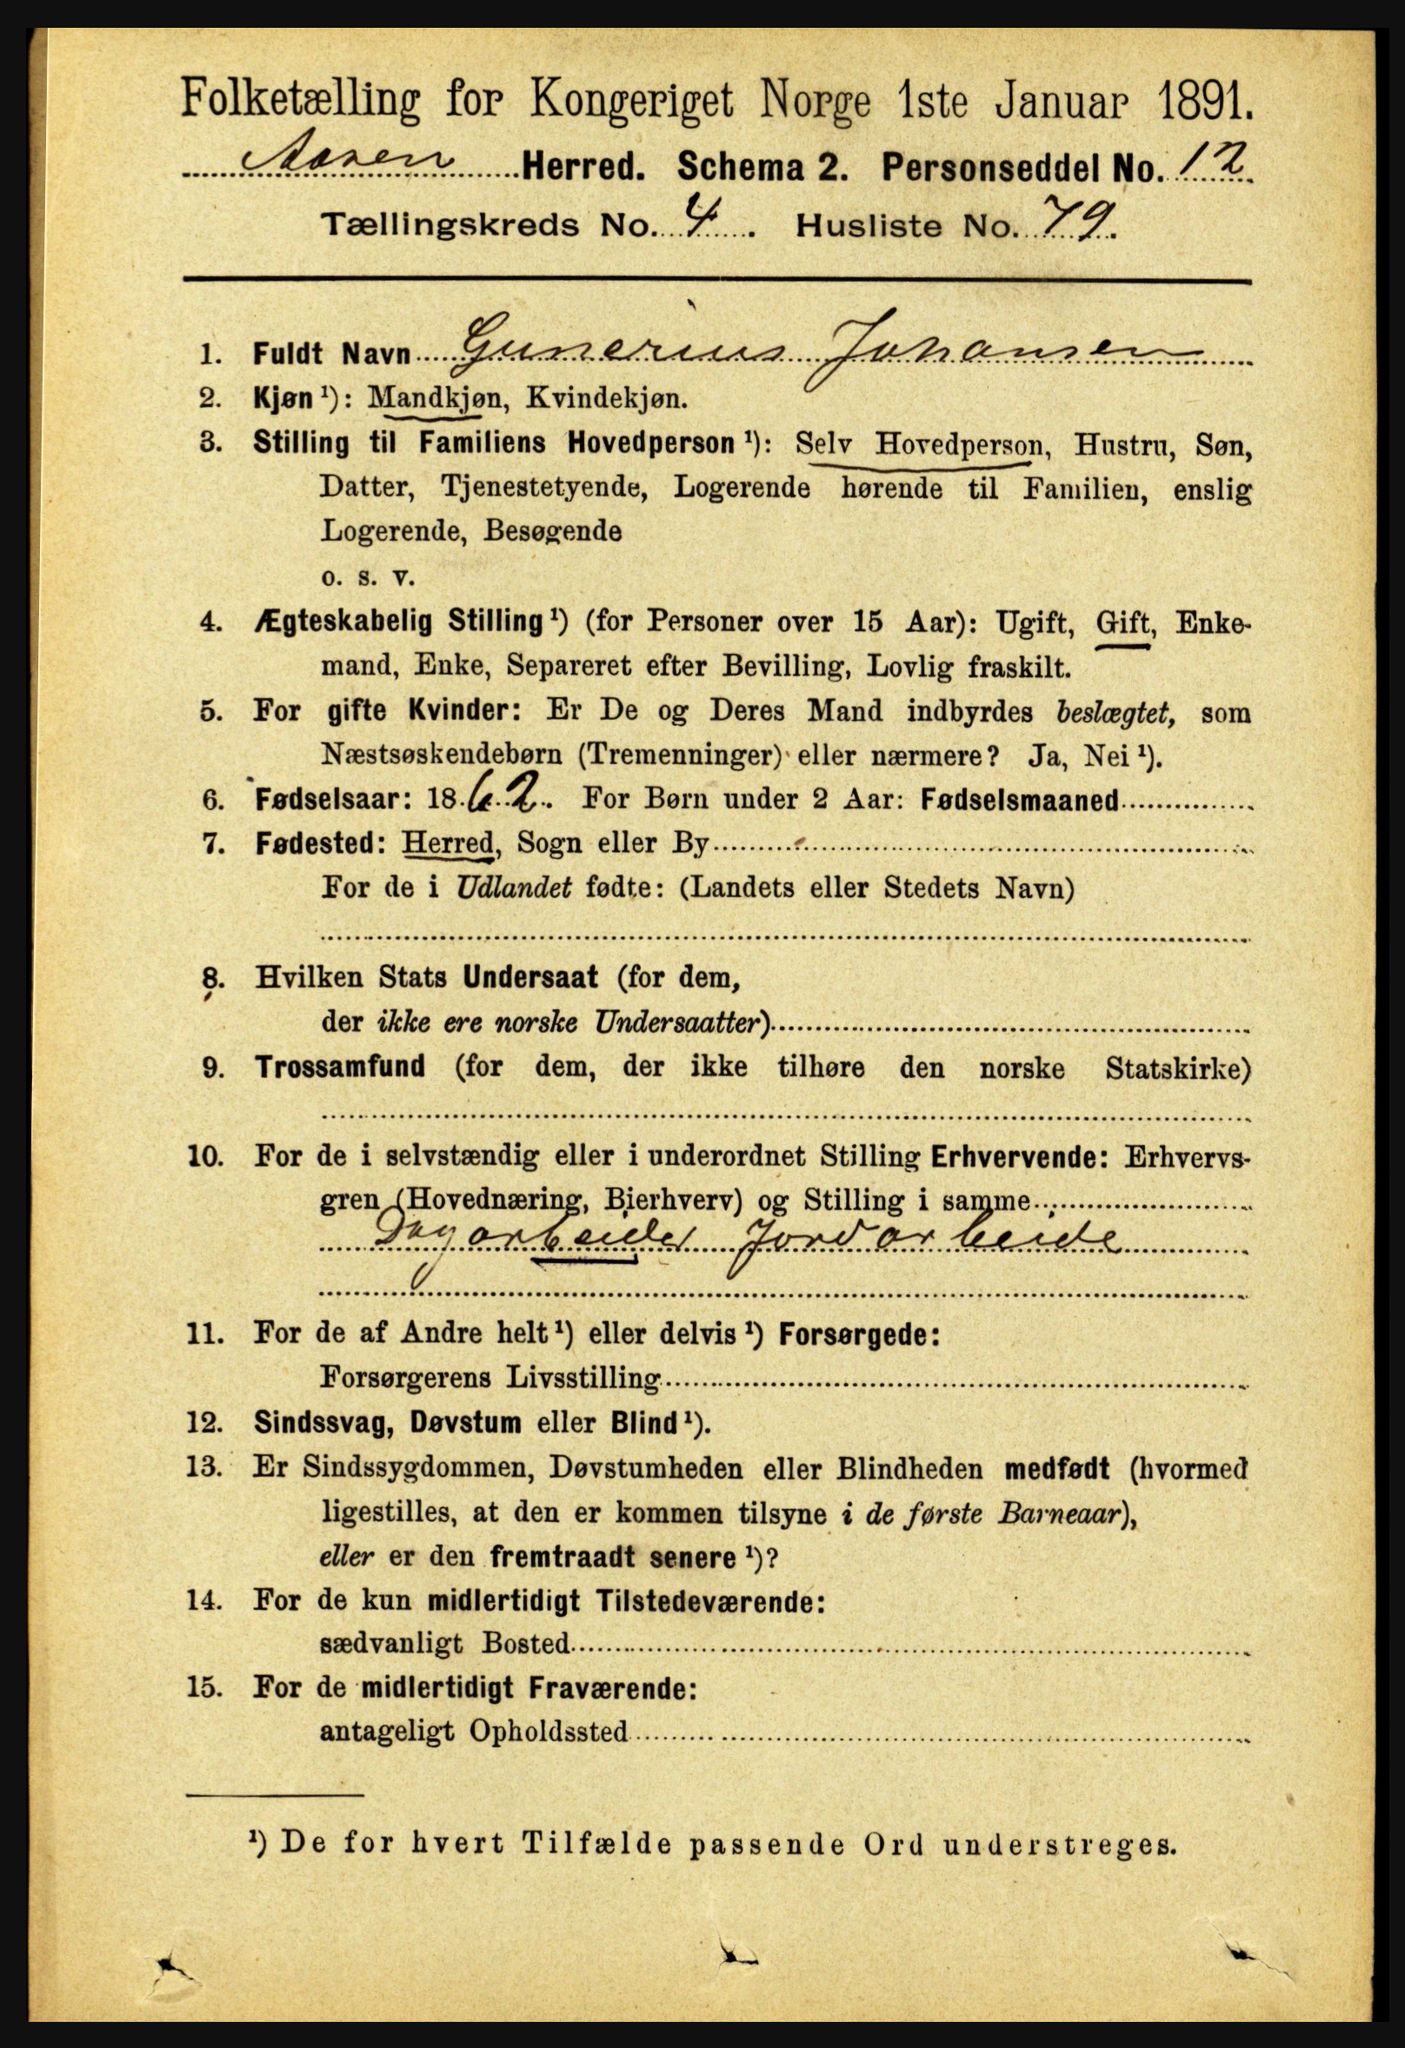 Folketælling for Kongeriget Norge 1ste Januar 1891.
Aasen Herred. Schema 2. Personseddel No. 12
Tællingskreds No. 4. Husliste No. 79.
1. Fuldt Navn Gunerius Johansen
2. Kjøn ¹): Mandkjøn, Kvindekjøn.
3. Stilling til Familiens Hovedperson ¹): Selv Hovedperson, Hustru, Søn,
Datter, Tjenestetyende, Logerende hørende til Familien, enslig
Logerende, Besøgende
o. s. v.
4. Ægteskabelig Stilling ¹) (for Personer over 15 Aar): Ugift, Gift, Enke-
mand, Enke, Separeret efter Bevilling, Lovlig fraskilt.
5. For gifte Kvinder: Er De og Deres Mand indbyrdes beslægtet, som
Næstsøskendebørn (Tremenninger) eller nærmere? Ja, Nei ¹).
6. Fødselsaar: 1862. For Børn under 2 Aar: Fødselsmaaned
7. Fødested: Herred, Sogn eller By
For de i Udlandet fødte: (Landets eller Stedets Navn)
8. Hvilken Stats Undersaat (for dem,
der ikke ere norske Undersaatter)
9. Trossamfund (for dem, der ikke tilhøre den norske Statskirke)
10. For de i selvstændig eller i underordnet Stilling Erhvervende: Erhvervs-
gren (Hovednæring, Bierhverv) og Stilling i samme
Dagarbeider Jordarbeide
11. For de af Andre helt ¹) eller delvis ¹) Forsørgede:
Forsørgerens Livsstilling
12. Sindssvag, Døvstum eller Blind ¹).
13. Er Sindssygdommen, Døvstumheden eller Blindheden medfødt (hvormed
ligestilles, at den er kommen tilsyne i de første Barneaar),
eller er den fremtraadt senere ¹)?
14. For de kun midlertidigt Tilstedeværende:
sædvanligt Bosted
15. For de midlertidigt Fraværende:
antageligt Opholdssted
¹) De for hvert Tilfælde passende Ord understreges.